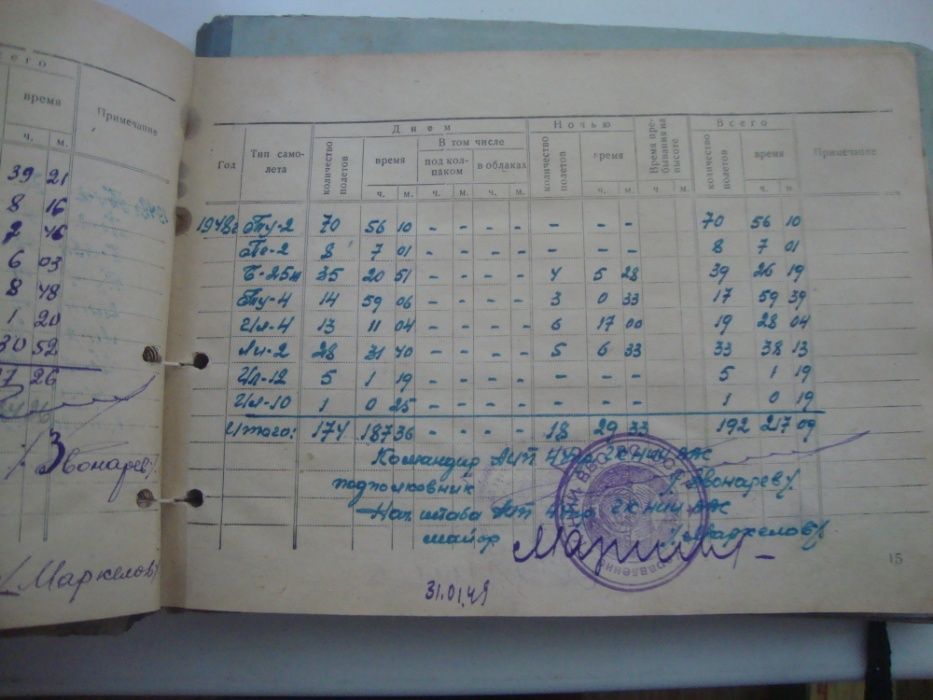 его
время
Примечание
ч. м.
39 21
8 16
2 46
6 03
8 48
1 20
30 52
7 26
/Звонарев/
/Маркелов/
Год
Тип само-
лета
Днем
Ночью
Время пре-
бывания на
высоте
Всего
Примечание
количество
полетов
время
В том числе
под кол-
паком
в облаках
количество
полетов
время
количество
полетов
время
ч. м. ч. м. ч. м. ч. м. ч. м.
1948г Ту-2 70 56 10 - - - - - - - 70 56 10
Пе-2 8 7 01 - - - - - - - 8 7 01
Б-25 35 20 51 - - - - 4 5 28 39 26 19
Ту-4 14 59 06 - - - - 3 0 33 17 59 39
Ил-4 13 11 04 - - - - 6 17 00 19 28 04
Ли-2 28 31 40 - - - - 5 6 33 33 38 13
Ил-12 5 1 19 - - - - - - - 5 1 19
Ил-10 1 0 25 - - - - - - - 1 0 19
Итого: 174 187 36 - - - - 18 29 33 192 217 09
Командир ГК НИИ ВВС
подполковник /Звонарев/
Нач штаба ГК НИИ ВВС
майор /Маркелов/
31.01.49
15